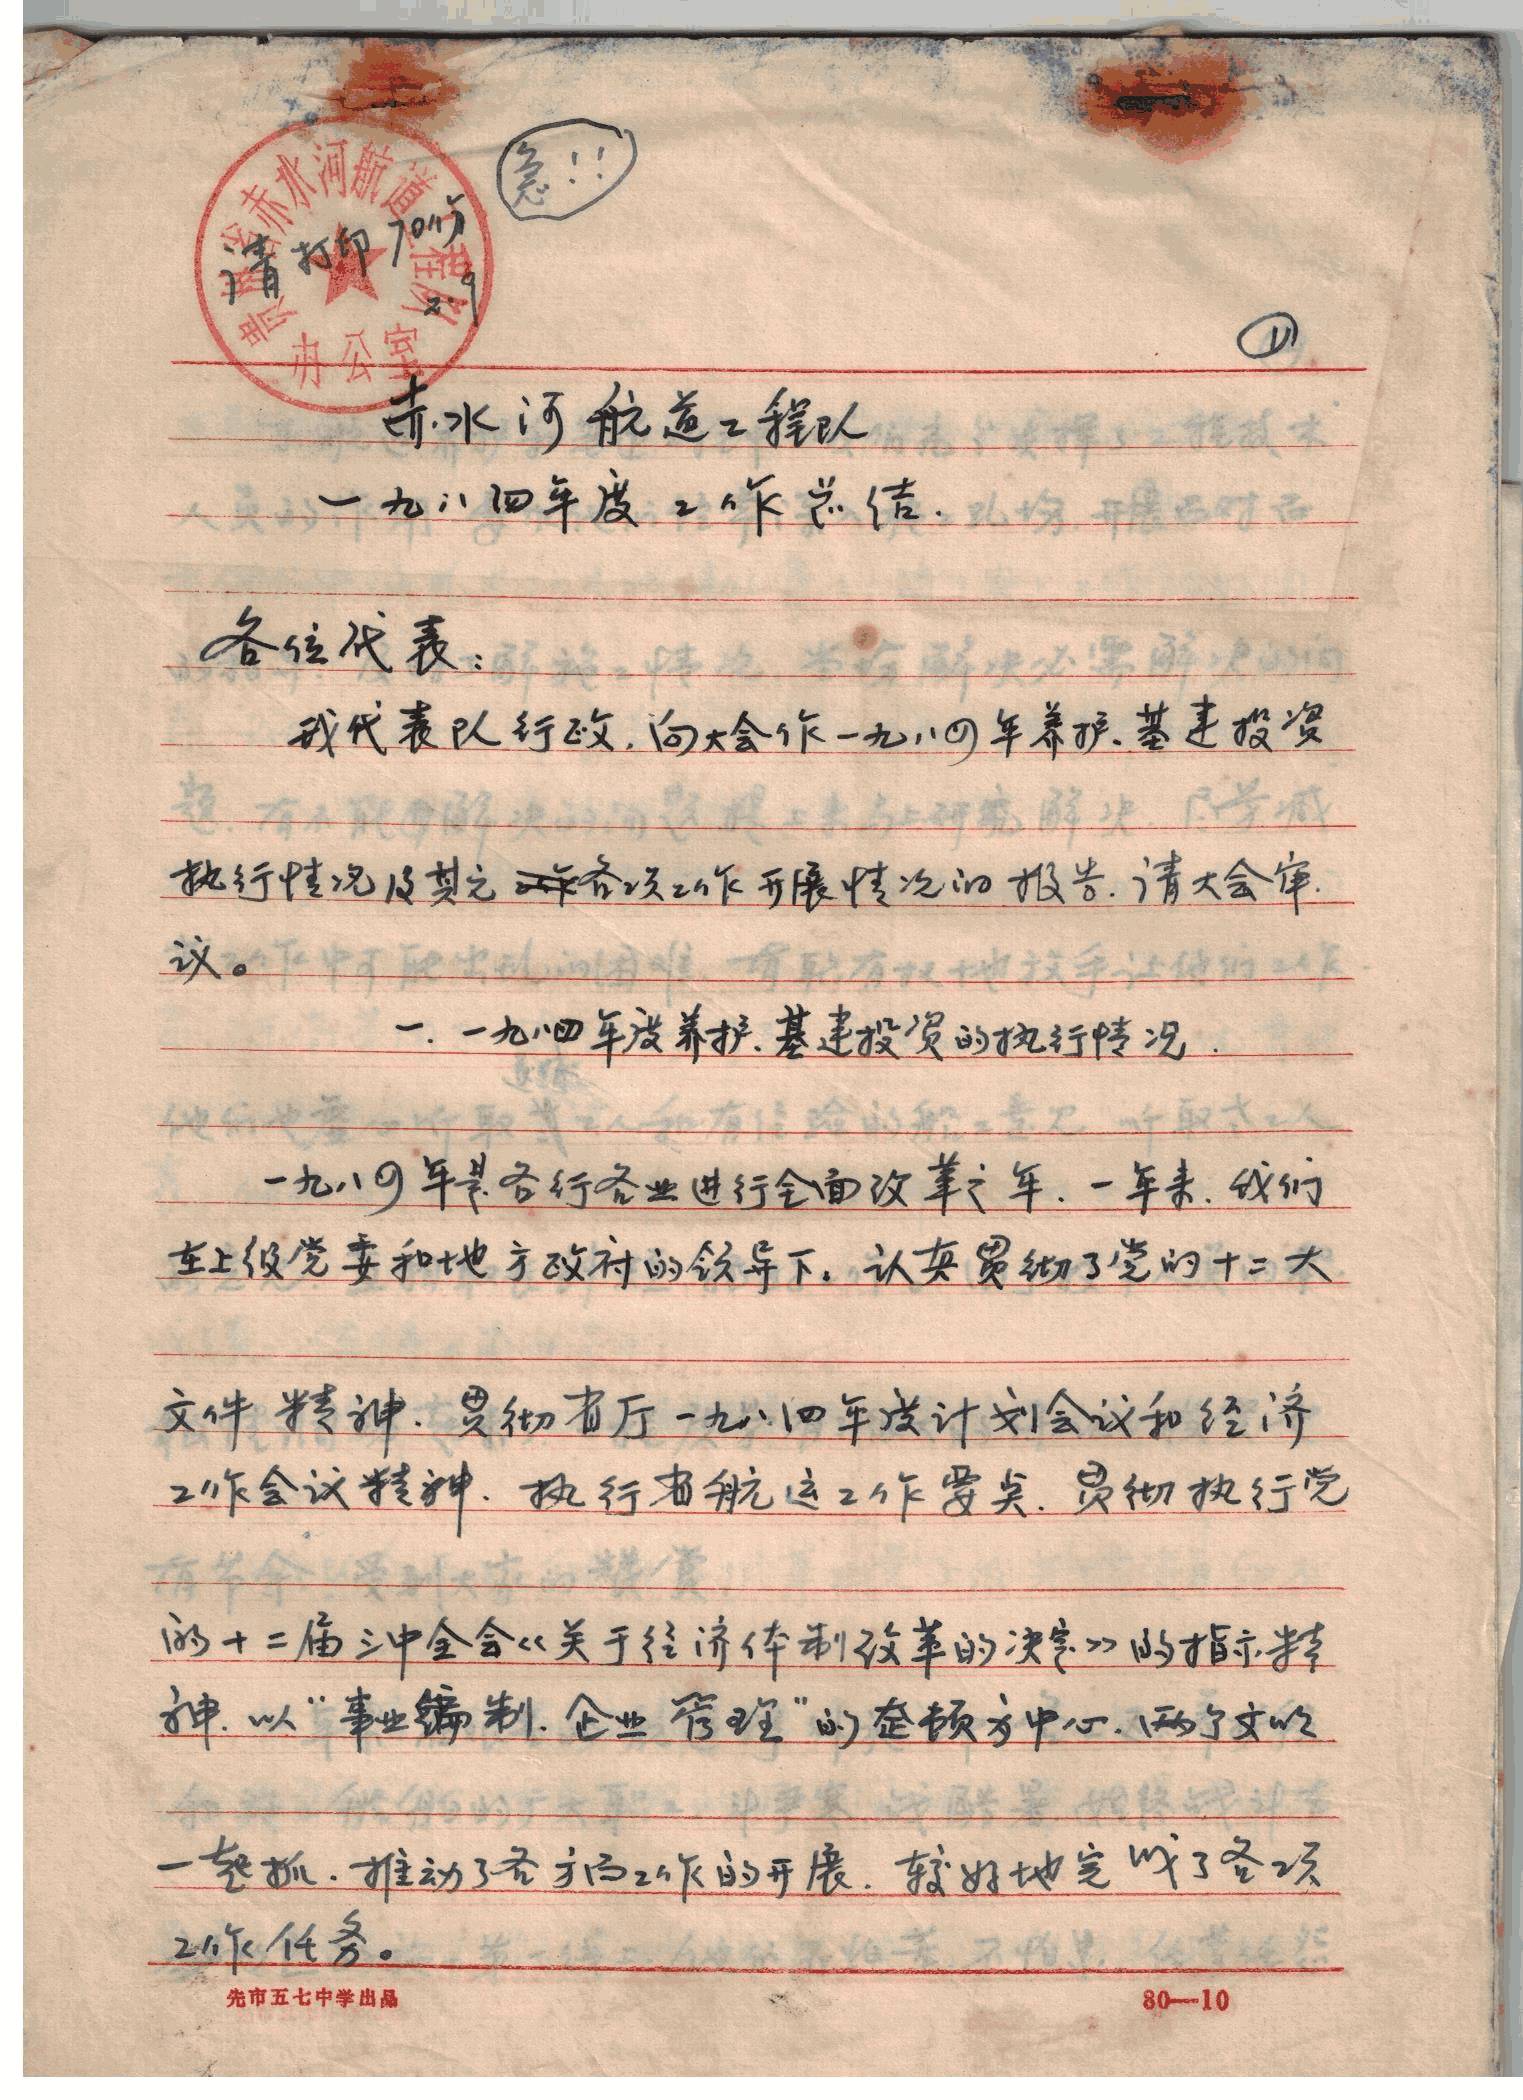 急！！
贵州省赤水河航道工程队
办公室
请打印70份
2.9
①
赤水河航道工程队
一九八四年度工作总结.
各位代表：
我代表队行政，向大会作一九八四年养护、基建投资
执行情况及其它各项工作开展情况的报告.请大会审.
议。
一.一九八四年度养护、基建投资的执行情况.
一九八四年是各行各业进行全面改革之年.一年来.我们
在上级党委和地方政府的领导下。认真贯彻了党的十二大
文件精神.贯彻省厅一九八四年度计划会议和经济
工作会议精神.执行省航运工作要点.贯彻执行党
的十二届三中全会《关于经济体制改革的决定》的指示精
神.以“事业编制.企业管理”的整顿为中心.两个文明
一起抓.推动了各方面工作的开展.较好地完成了各项
工作任务。
先市五七中学出品
80—10